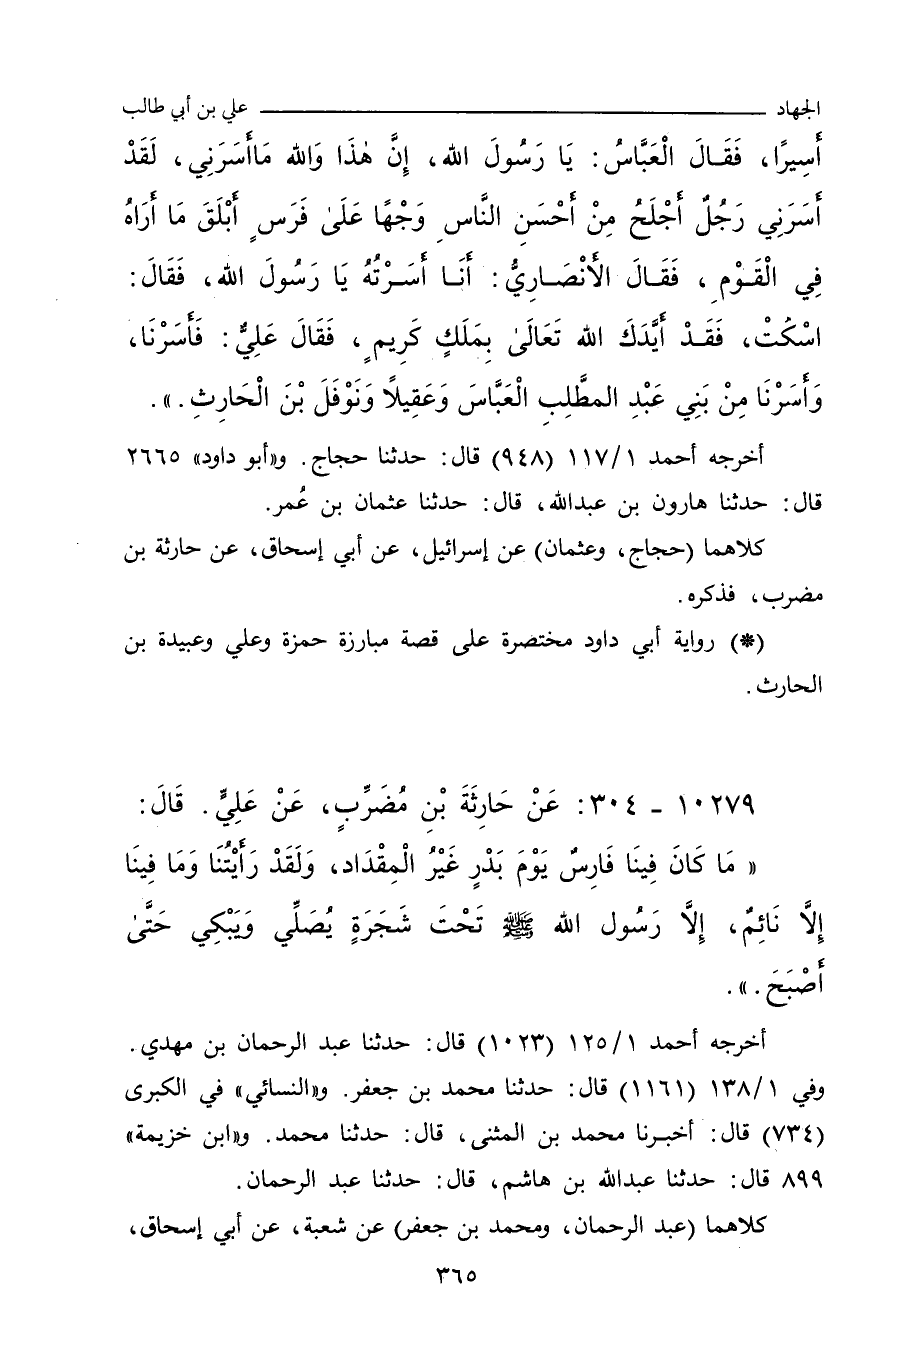 الجهاد ـــــــــــــ علي بن أبي طالب
أَسِيرًا، فَقَالَ الْعَبَّاسُ: يَا رَسُولَ الله، إِنَّ هٰذَا وَالله مَاأَسَرَنِي، لَقَدْ
أَسَرَنِي رَجُلٌ أَجْلَحُ مِنْ أَحْسَنِ النَّاسِ وَجْهًا عَلَىٰ فَرَسٍ أَبْلَقَ مَا أَرَاهُ
فِي الْقَوْمِ، فَقَالَ الأَنْصَارِيُّ: أَنَا أَسَرْتُهُ يَا رَسُولَ الله، فَقَالَ:
اسْكُتْ، فَقَدْ أَيَّدَكَ الله تَعَالَىٰ بِمَلَكٍ كَرِيمٍ، فَقَالَ عَلِيٌّ: فَأَسَرْنَا،
وَأَسَرْنَا مِنْ بَنِي عَبْدِ المطَّلِبِ الْعَبَّاسَ وَعَقِيلاً وَنَوْفَلَ بْنَ الْحَارِثِ.».
أخرجه أحمد ١/١١٧ (٩٤٨) قال: حدثنا حجاج. و«أبو داود» ٢٦٦٥
قال: حدثنا هارون بن عبدالله، قال: حدثنا عثمان بن عُمر.
كلاهما (حجاج، وعثمان) عن إسرائيل، عن أبي إسحاق، عن حارثة بن
مضرب، فذكره.
(*) رواية أبي داود مختصرة على قصة مبارزة حمزة وعلي وعبيدة بن
الحارث.
١٠٢٧٩ - ٣٠٤: عَنْ حَارِثَةَ بْنِ مُضَرِّبٍ، عَنْ عَلِيٍّ. قَالَ:
« مَا كَانَ فِينَا فَارِسٌ يَوْمَ بَدْرٍ غَيْرُ الْمِقْدَادِ، وَلَقَدْ رَأَيْتُنَا وَمَا فِينَا
إِلَّا نَائِمٌ، إِلَّا رَسُول الله ﷺ تَحْتَ شَجَرَةٍ يُصَلِّي وَيَبْكِي حَتَّىٰ
أَصْبَحَ.».
أخرجه أحمد ١/١٢٥ (١٠٢٣) قال: حدثنا عبد الرحمان بن مهدي.
وفي ١/١٣٨ (١١٦١) قال: حدثنا محمد بن جعفر. و«النسائي» في الكبرى
(٧٣٤) قال: أخبرنا محمد بن المثنى، قال: حدثنا محمد. و«ابن خزيمة»
٨٩٩ قال: حدثنا عبدالله بن هاشم، قال: حدثنا عبد الرحمان.
كلاهما (عبد الرحمان، ومحمد بن جعفر) عن شعبة، عن أبي إسحاق،
٣٦٥